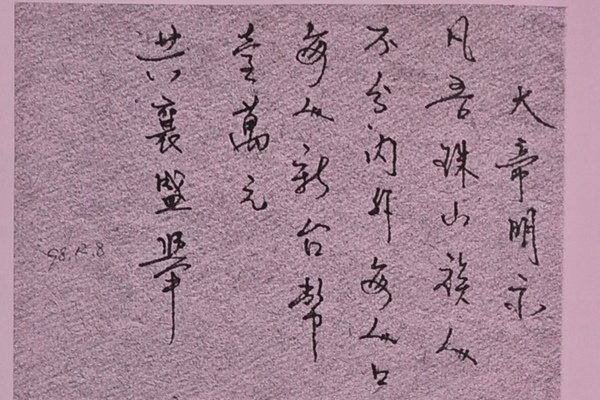 大帝明示
凡吾珠山族人
不分內外每人口
每人新台幣
壹萬元
共襄盛舉
98.12.8